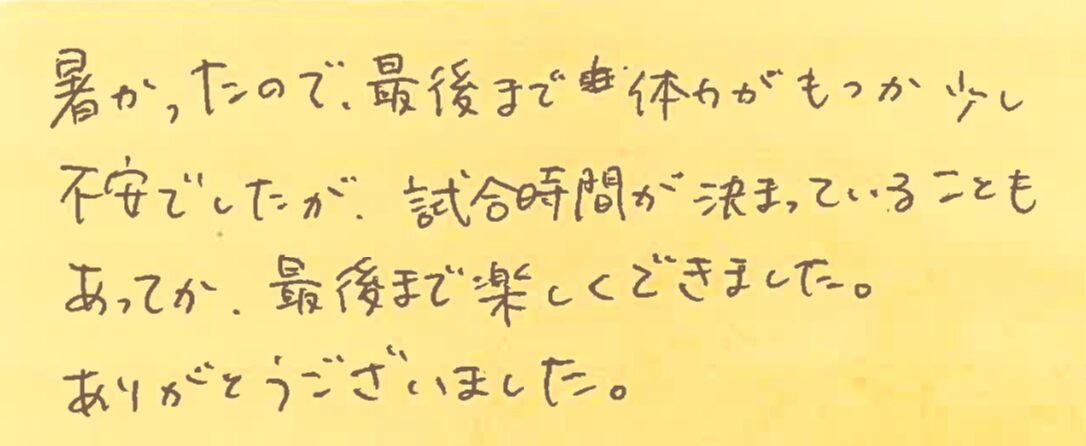 暑かったので、最後まで体力がもつか少し
不安でしたが、試合時間が決まっていることも
あってか、最後まで楽しくできました。
ありがとうございました。